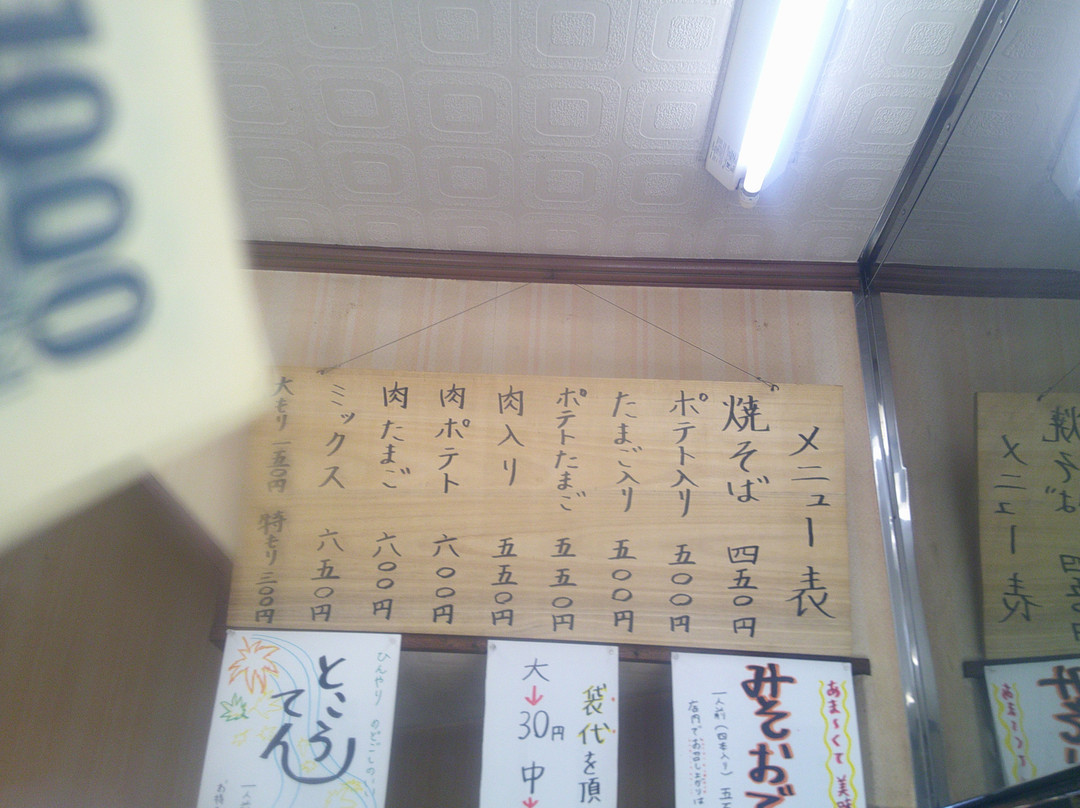 メニュー表
焼そば 四五〇円
ポテト入り 五〇〇円
たまご入り 五〇〇円
ポテトたまご 五五〇円
肉入り 五五〇円
肉ポテト 六〇〇円
肉たまご 六〇〇円
ミックス 六五〇円
大もり 一五〇円 特もり 三〇〇円
あま〜くて 美味
みそおで
一人前(四本入り) 五五
店内でお召し上がりは
袋代を頂
大→30円 中→
ひんやり のどごしの
ところてん
一人前
お持
1000